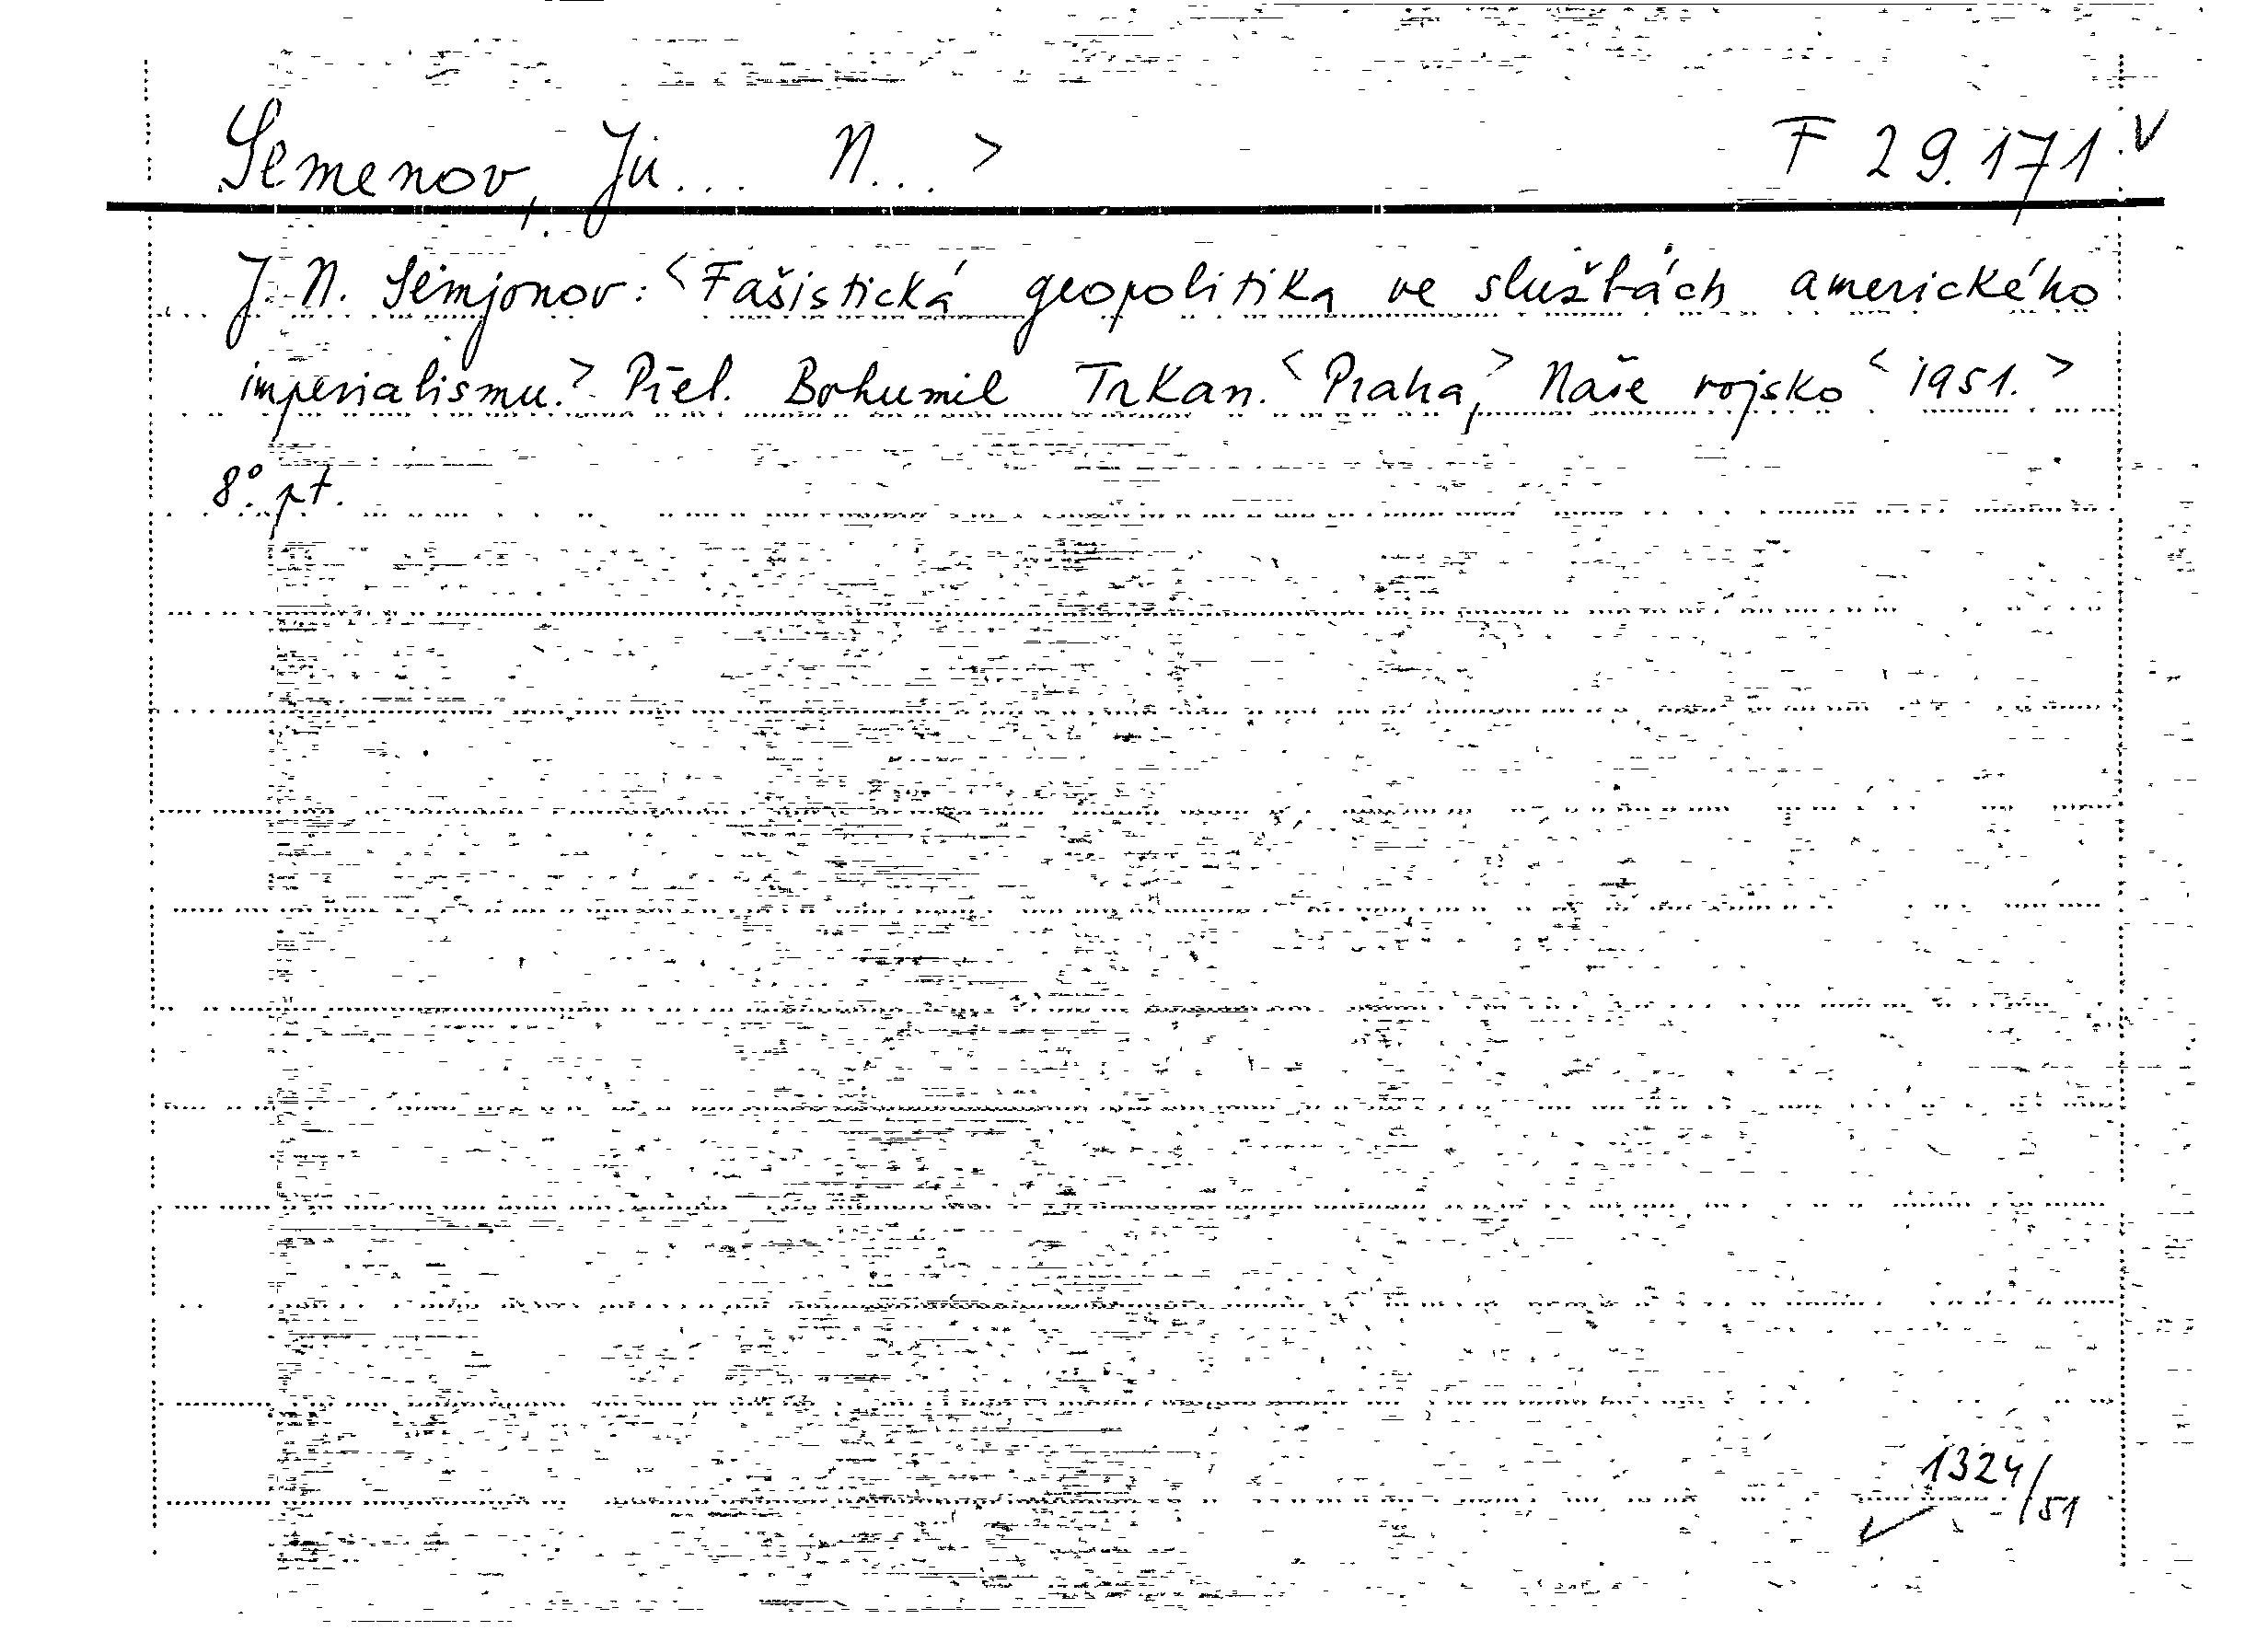 Semenov, Ju... N...> F 29.171 v
J. N. Semjonov: <Fašistická geopolitika ve službách amerického
imperialismu.> Přel. Bohumil Trkan. <Praha,> Naše vojsko <1951.>
8°. pt.
1324/51